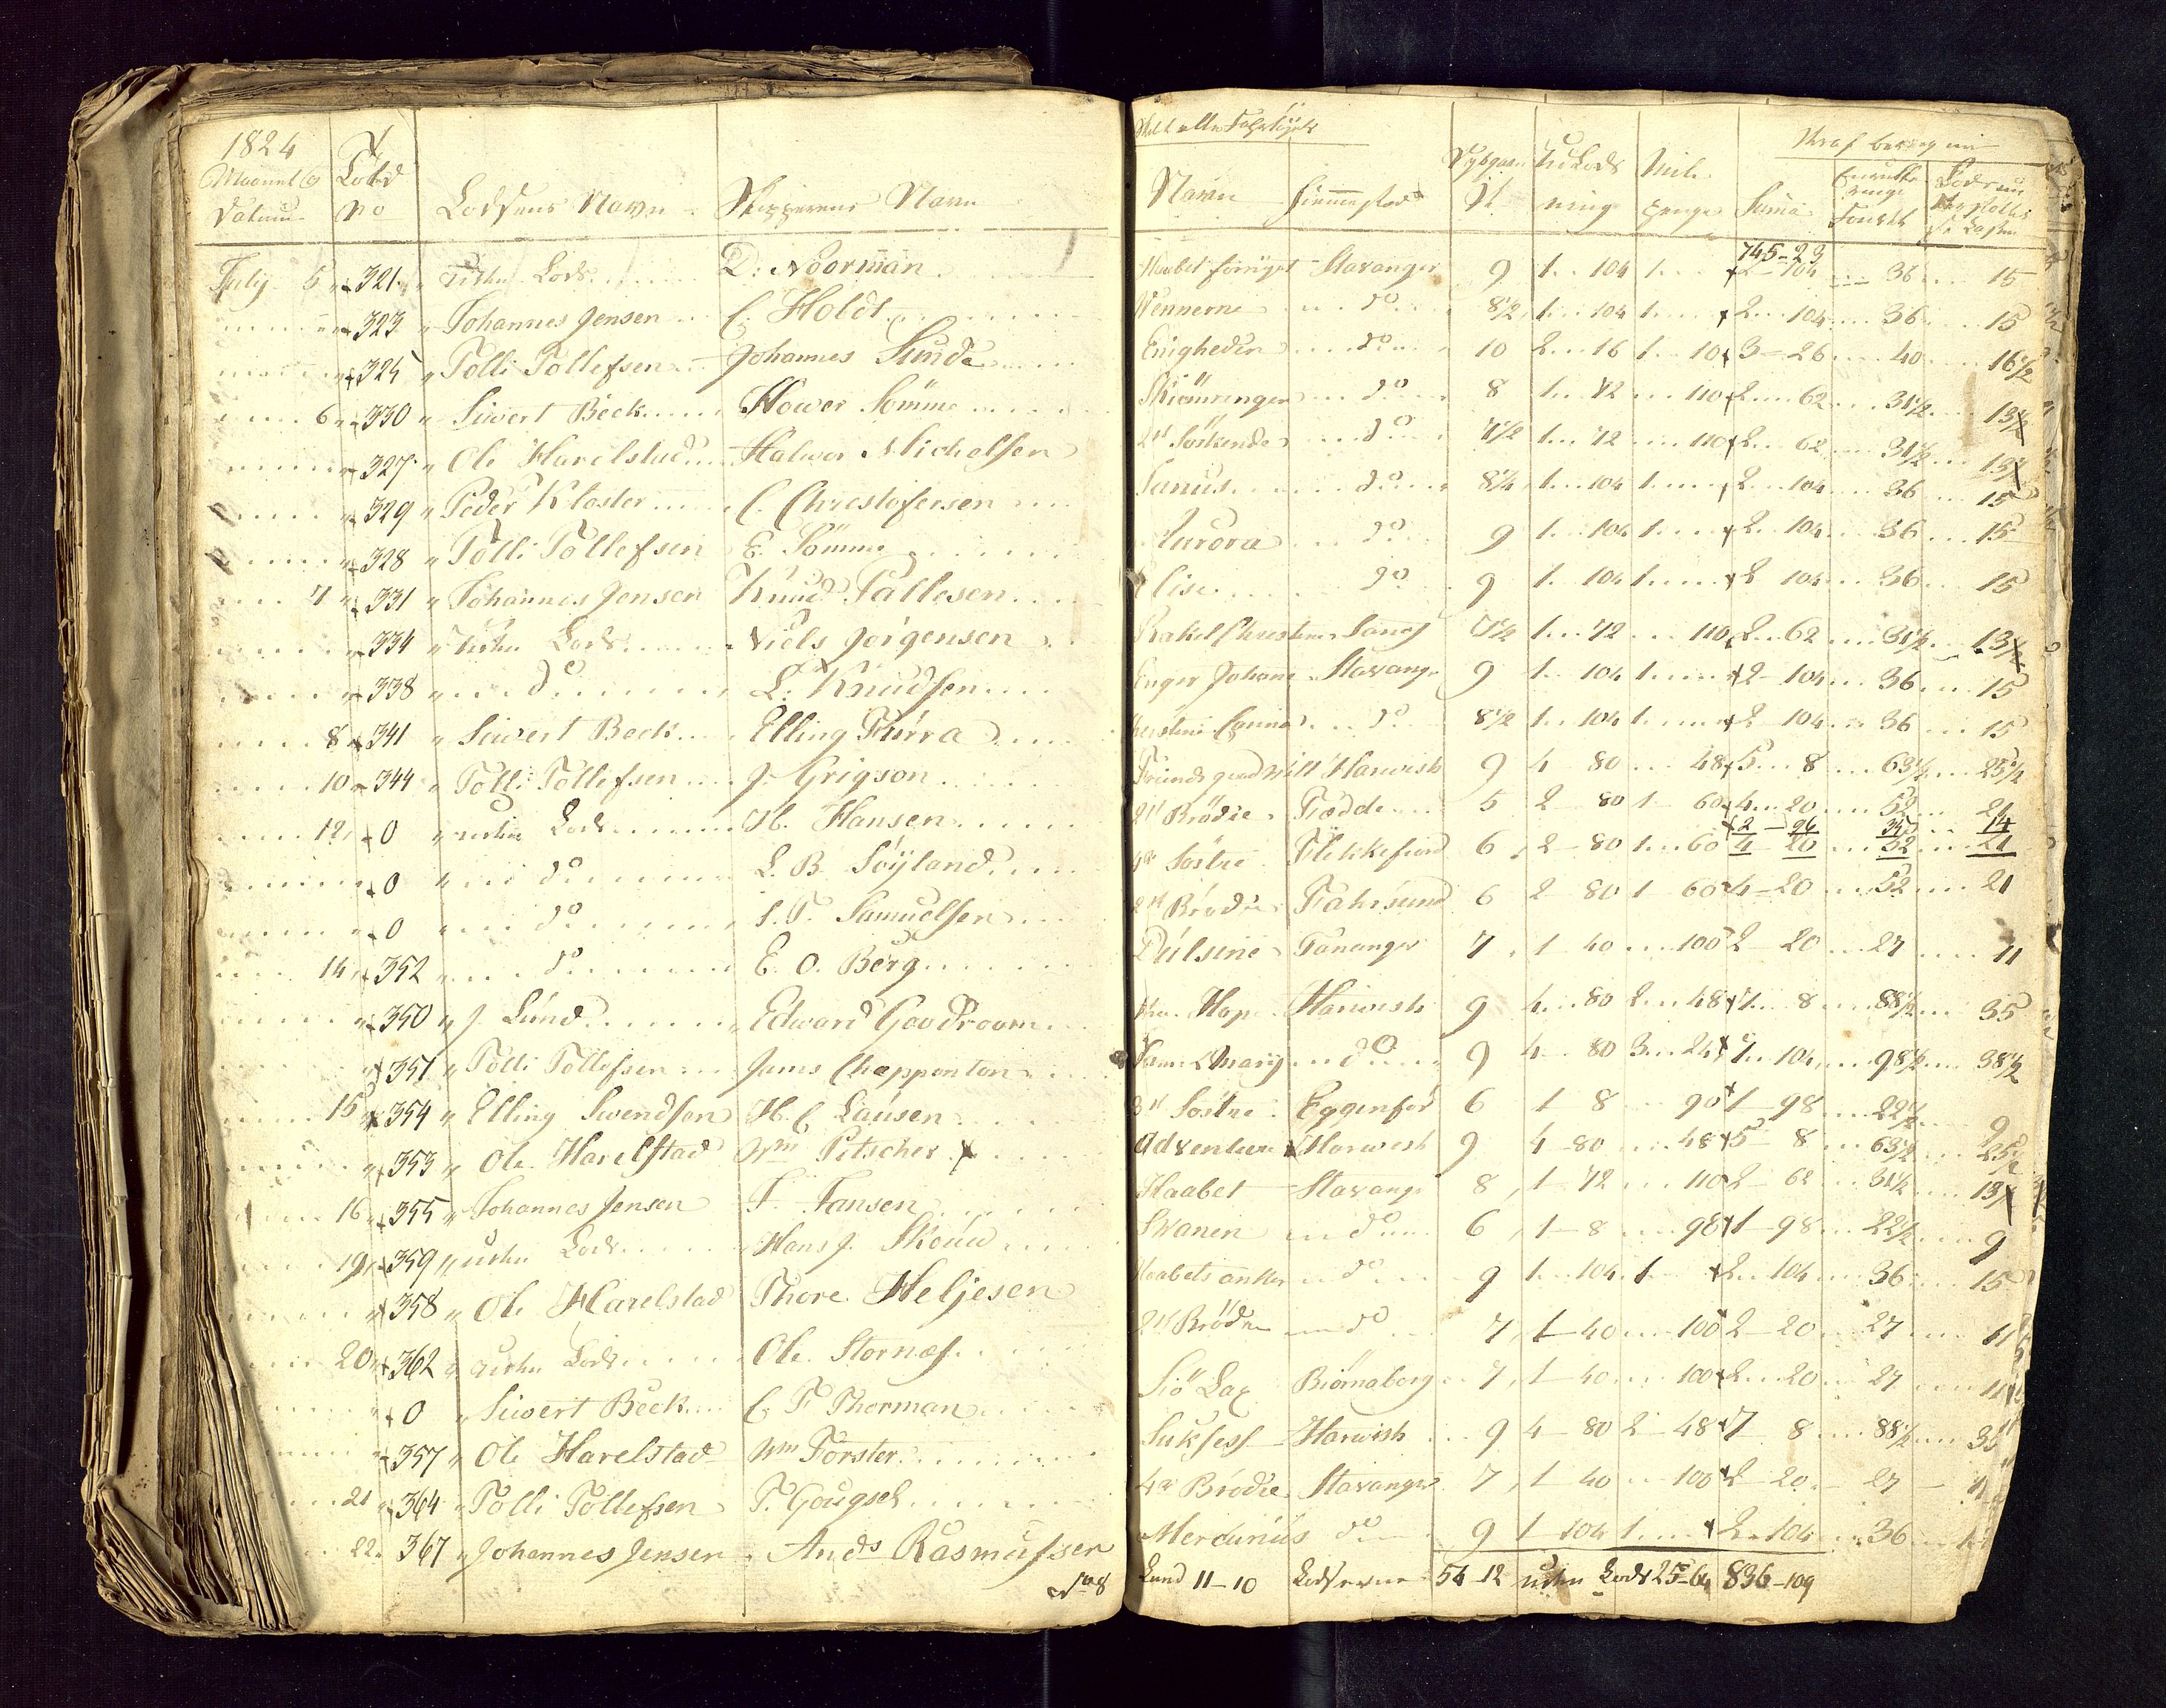 1824
Maaned og Datum Told No Lodsens Navn Skipperens Navn
July 5 321 uden Lods D: Noorman
323 Johannes Jensen C. Holdt
325 Tolli Tollefsen Johannes Sunde
6 330 Siwert Beck Hower Sömme
327 Ole Harelstad Halwor Michelsen
329 Peder Kloster C. Christofersen
328 Tolli Tollefsen E. Sömme
7 331 Johannes Jensen Knud Tallesen
334 uden Lods Niels Jörgensen
338 do L. Knudsen
8 341 Siwert Beck Elling Kurra
10 344 Tolli Tollefsen J. Grigson
12 0 uden Lods H. Hansen
0 do L. B. Söyland
0 do S. T. Samuelsen
14 352 do E. O. Berg
350 J. Lund Edward Goodroom
351 Tolli Tollefsen Jams Chappenton
15 354 Elling Swendsen H. C. Lausen
353 Ole Harelstad Wm Pitscher
16 355 Johannes Jensen F. Fansen
19 359 uden Lods Hans J. Skouw
358 Ole Harelstad Thore Heljesen
20 362 uden Lods Ole Stornæs
0 Siwert Beck C. F. Thorman
357 Ole Harelstad Wm Forster
21 364 Tolli Tollefsen T. Gougsel
22 367 Johannes Jensen Ands Rasmussen
Navn Hiemmested
Summa
745-23
Haabet forniyet Stavanger 9 1 104 1 2-104 36 15
Wennerne do 8 1/2 1 104 1 2 104 36 15
Enigheden do 10 2 16 1 10 3-26 40 16 1/2
do 8 1 72 110 2 62 31 1/2 13 1/2
2de Söskende do 7 1/2 1 72 110 2 62 31 1/2 13
Janus do 8 1/4 1 104 1 2 104 36 15
Aurora do 9 1 104 1 2 104 36 15
Elise do 9 1 104 1 2 104 36 15
7 1/2 1 72 110 2 62 31 1/2 13 1/2
Enger Johane Stavang 9 1 104 1 2-104 36 15
do 8 1/2 1 104 1 2 104 36 15
Harwish 9 4 80 48 5 8 63 1/2 25 1/2
2de Brödre Fædde 5 2 80 1 60 4 20 52 21
2-96 35 14
4re Söstre Flekkefiord 6 2-80 1 60 4 20 52 21
2de Brödre Fahrsund 6 2 80 1 60 4-20 52 21
Dulsine Tananger 7 1-40 100 2-20 27 11
Hope Harwish 9 4 80 2 48 7 8 88 1/2 35
Mary do 9 4 80 3 24 7 104 98 1/2 38 1/2
Söstre Eggersö 6 1 8 90 1-98 22 1/2 9
Adventure Harwish 9 4-80 48 5 8 63 1/2 25 1/2
Haabet Stavang 8 1-72 110 2-62 31 1/2 13
Swanen do 6 1-8 90 1-98 22 1/2 9
Haabets anker do 9 1 104 1 2 104 36 15
2de Brödre do 7 1-40 100 2-20 27 11
Siö Lax Biörnaborg 7 1-40 100 2 20 27 11
Suksess Harwish 9 4-80 2-48 7 8 88 1/2 35
4re Brödre Stavanger 7 1-40 100 2-20 27 11
Mercurius do 9 1-104 1 2-104 36
Lund 11-10 Lodserne 54-12 uden Lods 25-64 836-109